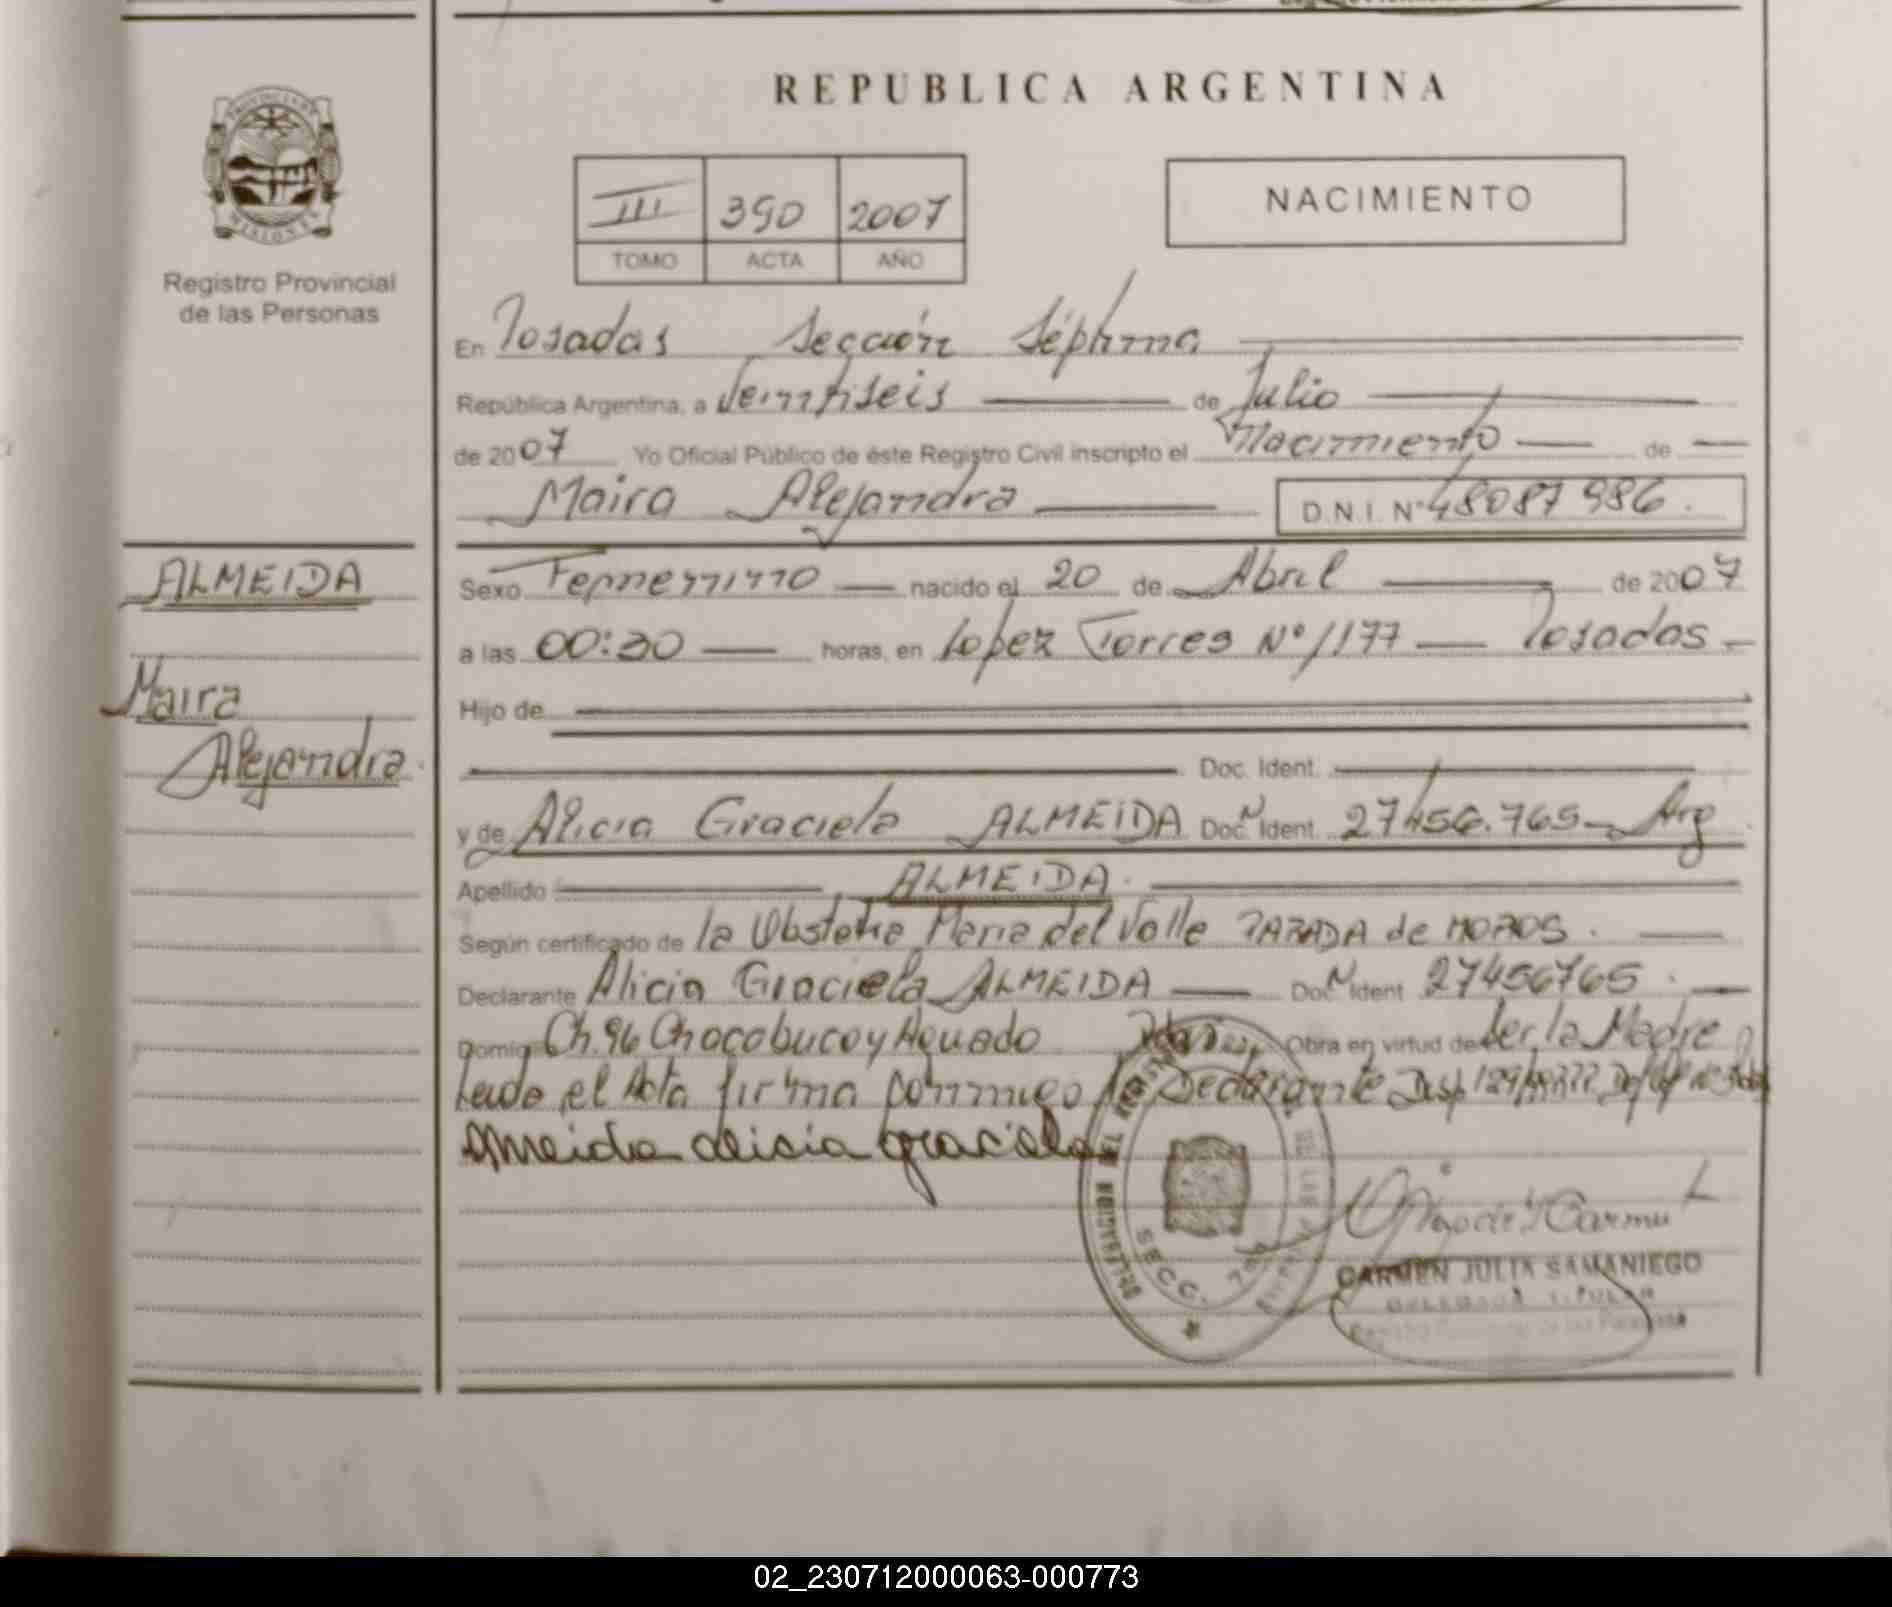 REPUBLICA ARGENTINA
PROVINCIA DE
MISIONES
Registro Provincial
de las Personas
III 390 2007
TOMO ACTA AÑO
NACIMIENTO
En Posadas Sección Séptima
República Argentina, a Veintiseis de Julio
de 2007 Yo Oficial Público de éste Registro Civil inscripto el Nacimiento de
Maira Alejandra D.N.I. Nº 48087986.
ALMEIDA
Maira
Alejandra.
Sexo Femenino nacido el 20 de Abril de 2007
a las 00:30 horas, en Lopez Torres Nº 1177 Posadas
Hijo de
Doc. Ident.
y de Alicia Graciela ALMEIDA Doc. Ident. 27456.765 Arg
Apellido ALMEIDA.
Según certificado de la Obstetra Maria del Valle PARADA de MOROS.
Declarante Alicia Graciela ALMEIDA Doc. Ident 27456765.
Domic. Ch. 96 Chacabuco y Aguado Obra en virtud de Ser la Madre
Leida el Acta firma conmigo la Declarante Disp
Almeida alicia graciela
SECC. 7a
CARMEN JULIA SAMANIEGO
DELEGADA TITULAR
Registro Provincial de las Personas
02_230712000063-000773